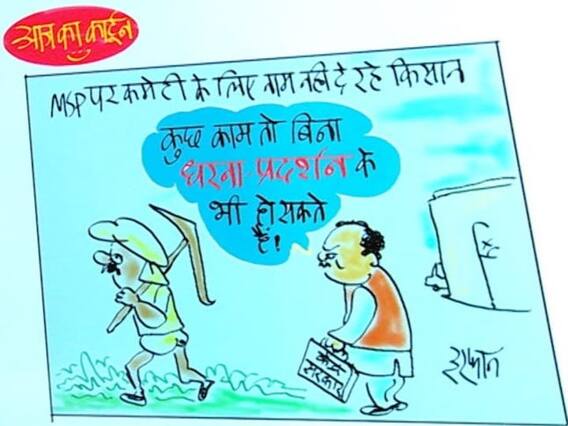 आज का कार्टून
MSP पर कमेटी के लिए नाम नहीं दे रहे किसान
कुछ काम तो बिना
धरना-प्रदर्शन के
भी हो सकते
हैं!
सरकार
इरफान